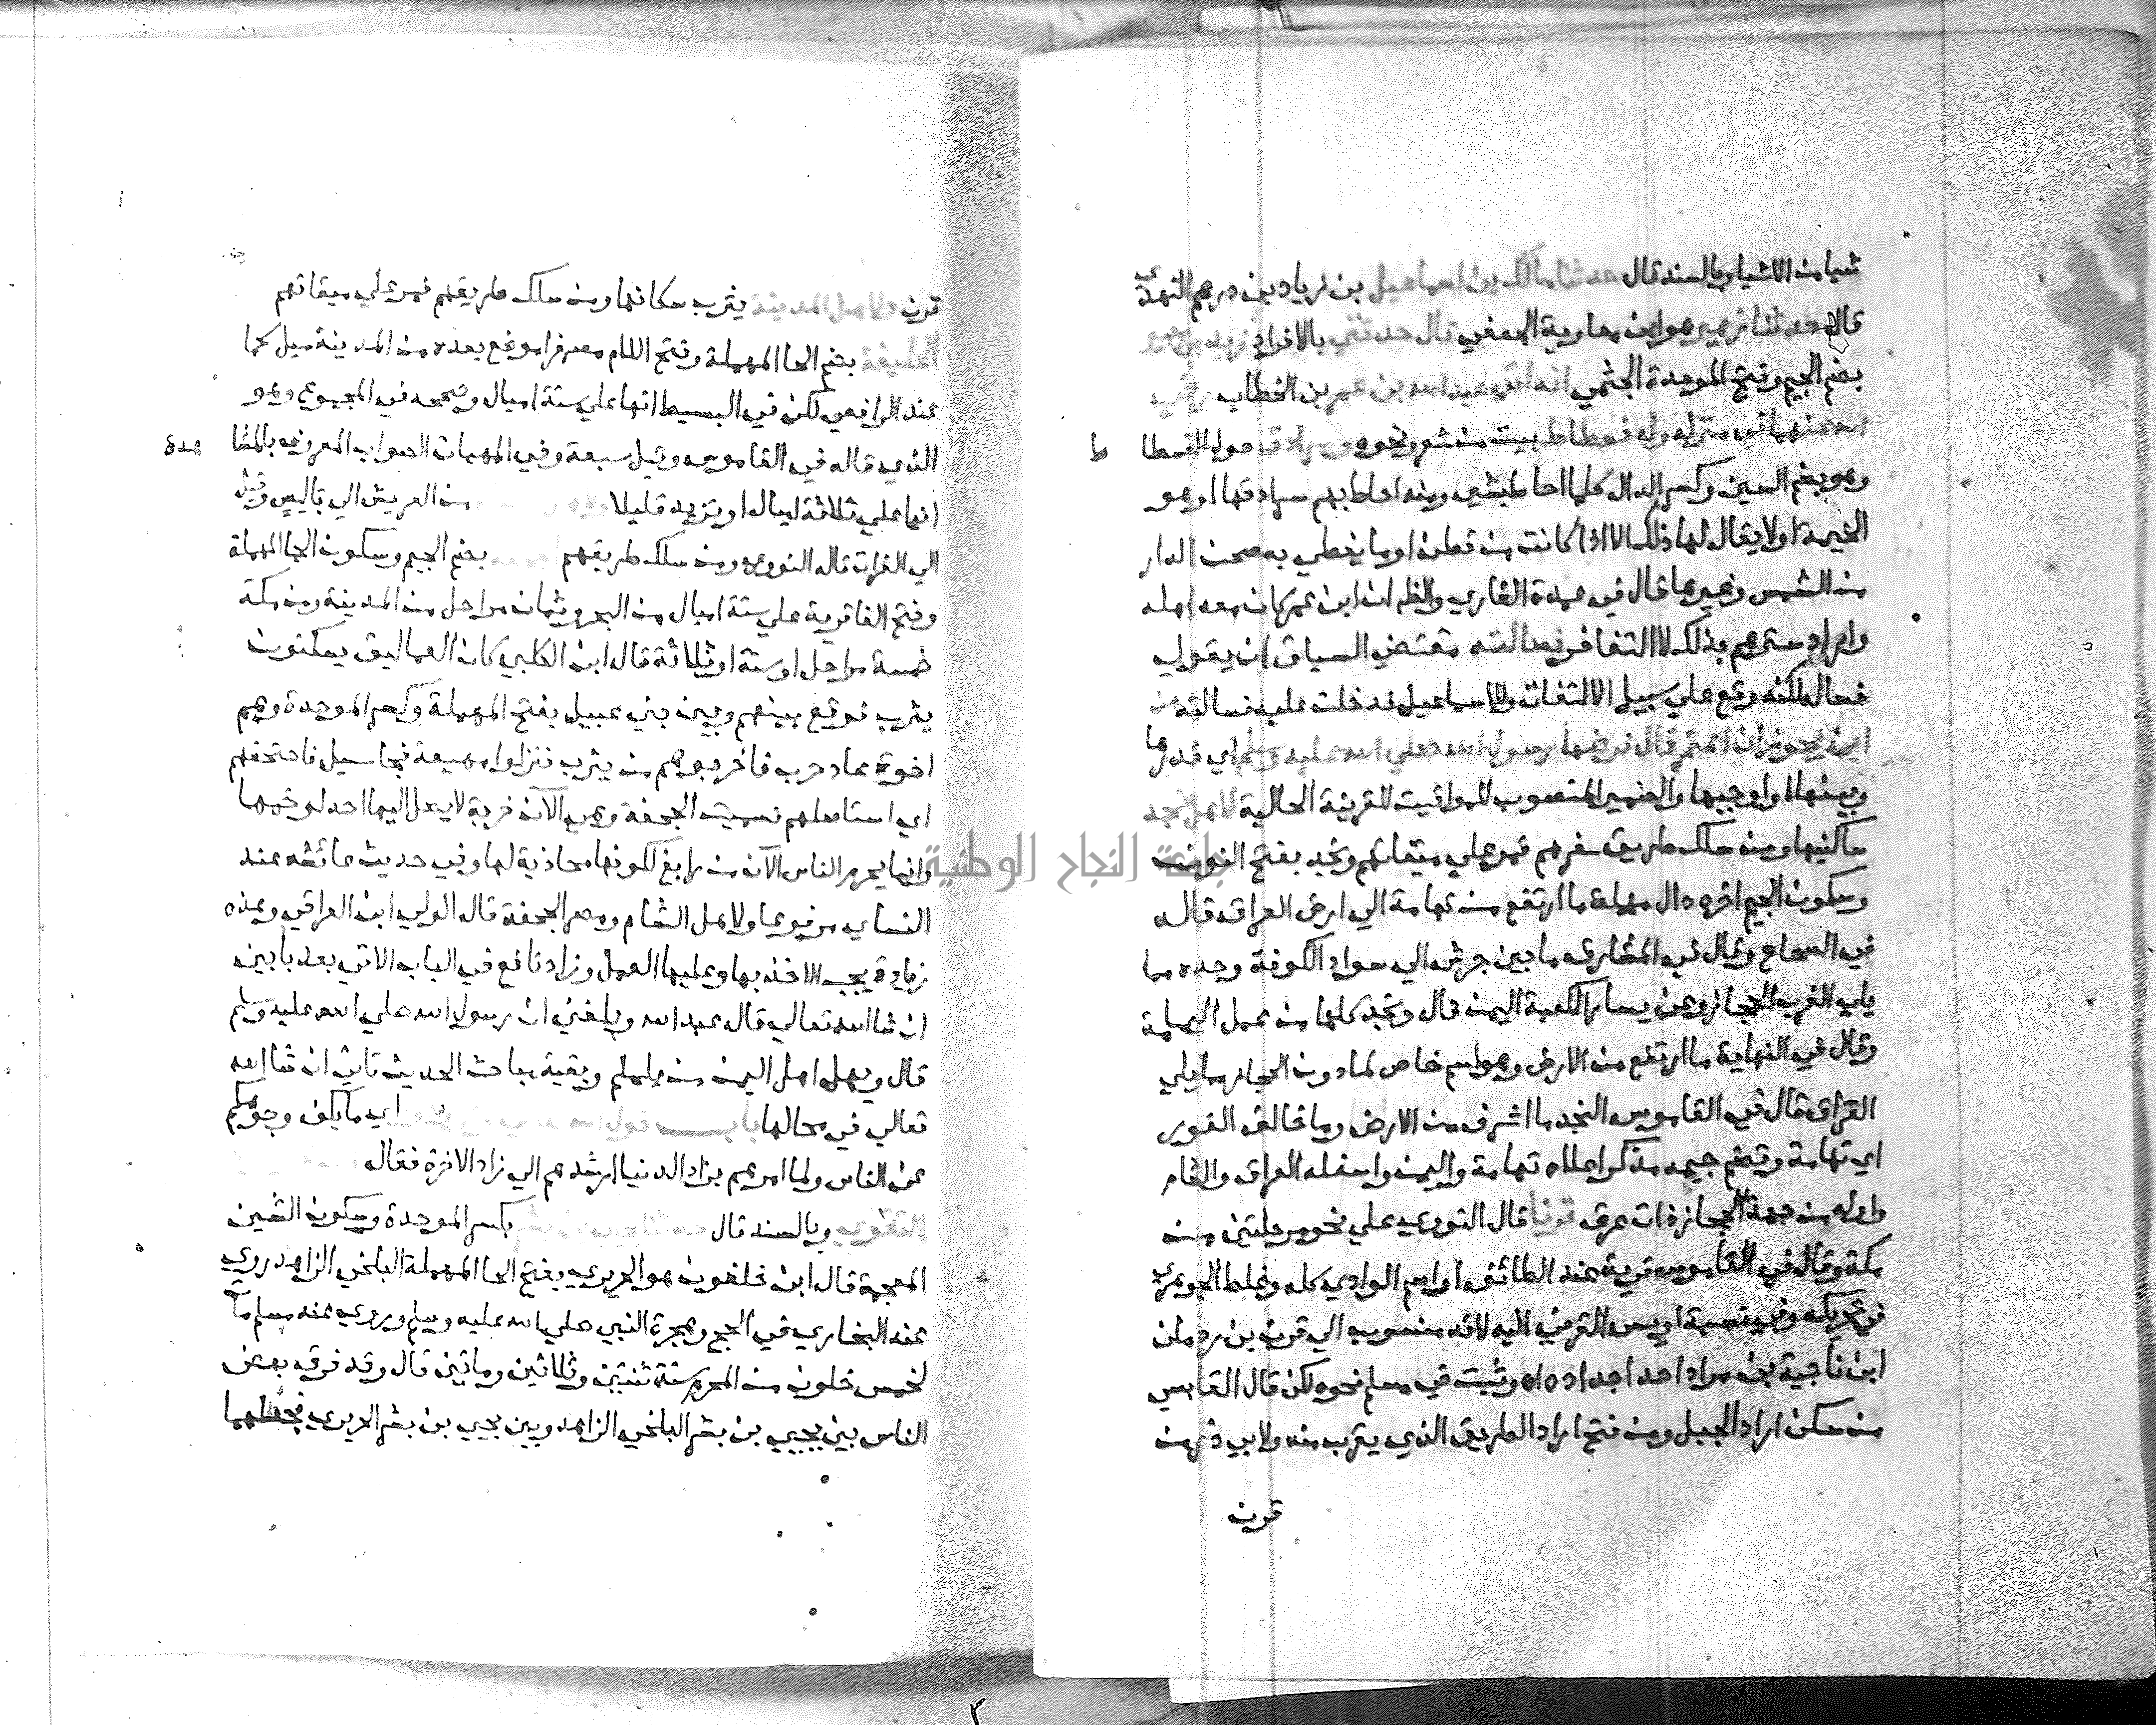 شيا من الاشيا وبالسند قال حدثنا مالك بن اسماعيل بن زياد بن درهم النهدي
قال حدثنا زهير هو ابن معاوية الجعفي قال حدثني بالافراد زيد بن جبير
بضم الجيم وفتح الموحدة الجثمي انه اتى عبد الله بن عمر بن الخطاب رضي
الله عنهما في منزله وله فسطاط بيت من شعر ونحوه وسرادق حول الفسطا ط
وهو بضم السين وكسر الدال كلما احاط بشي ومنه احاط بهم سرادقها او هو
الخيمة او لا يقال لها ذلك الا اذا كانت من قطن او ما يغطي به صحن الدار
من الشمس وغيرها قال في عمدة القاري والظ ان ابن عمر كان معه اهله
واراد سترهم بذلك لا التفاخر فسالته مقتضي السياق ان يقول
فساله لكنه وقع علي سبيل الالتفات وللاسماعيل فدخلت عليه فسالته من
اين يجوز ان اعتمر قال فرضها رسول الله صلي الله عليه وسلم اي قدرها
وبينها او اوجبها والضمير المنصوب للمواقيت للقرينة الحالية لاهل نجد
ساكنيها ومن سلك طريق سفرهم فمر علي ميقاتهم ونجد بفتح النون
وسكون الجيم اخره دال مهملة ما ارتفع من تهامة الي ارض العراق قاله
في الصحاح وقال في المشارق ما بين جرش الي سواد الكوفة وحده مما
يلي الغرب الحجاز وعن يسار الكعبة اليمن قال ونجد كلها من عمل اليمامة
وقال في النهاية ما ارتفع من الارض وهو اسم خاص لما دون الحجاز مما يلي
العراق قال في القاموس النجد ما اشرف من الارض وما خالف الغور
اي تهامة وتضم جيمه مذكر اعلاه تهامة واليمن واسفله العراق والشام
واوله من جهة الحجاز ذات عرق قرنا قال النووي علي نحو مرحلتين من
مكة وقال في القاموس قرية عند الطائف او اسم الوادي كله وغلط الجوهري
في تحريكه وفي نسبة اويس القرني اليه لانه منسوب الي قرن بن ردمان
ابن ناجية بن مراد احد اجداده اه وثبت في مسلم نحوه لكن قال القابسي
من سكن اراد الجبل ومن فتح اراد الطريق الذي يقرب منه ولابي ذر من
قرن
قرن ولاهل المدينة يثرب سكانها ومن سلك طريقهم فمر علي ميقاتهم
الحليفة بضم الحا المهملة وفتح اللام مصغرا موضع بعده من المدينة ميل كما
عند الرافعي لكن في البسيط انها علي ستة اميال وصححه في المجموع وهو
الذي قاله في القاموس وقيل سبعة وفي المهمات الصواب المعروف بالمشا هدة
انها علي ثلاثة اميال او تزيد قليلا من العريش الي بالس وقيل
الي الفرات قاله النووي ومن سلك طريقهم بضم الجيم وسكون الحا المهملة
وفتح الفا قرية علي ستة اميال من البحر وثمان مراحل من المدينة ومن مكة
خمسة مراحل او ستة او ثلاثة قال ابن الكلبي كان العماليق يسكنون
يثرب فوقع بينهم وبين بني عبيل بفتح المهملة وكسر الموحدة وهم
اخوة عاد حرب فاخرجوهم من يثرب فنزلوا مهيعة فجا سيل فاجتحفهم
اي استاصلهم فسميت الجحفة وهي الان خربة لا يصل اليها احد لوخمها
وانما يحرم الناس الآن من رابغ لكونها محاذية لها وفي حديث عائشة عند
النساي مرفوعا ولاهل الشام ومصر الجحفة قال الولي ابن العراقي وهذه
زيادة يجب الاخذ بها وعليها العمل وزاد نافع في الباب الاتي بعد بابين
ان شا الله تعالي قال عبد الله وبلغني ان رسول الله صلي الله عليه وسلم
قال ويهل اهل اليمن من يلملم وبقية مباحث الحديث تاتي ان شا الله
تعالي في محالها باب قول الله اي ما يكف وجوهكم
عن الناس ولما امرهم بزاد الدنيا ارشدهم الي زاد الاخرة فقال
التقوى وبالسند قال بكسر الموحدة وسكون الشين
المعجمة قال ابن خلفون هو الحريري بفتح الحا المهملة البلخي الزاهد روي
عنه البخاري في الحج وهجرة النبي صلي الله عليه وسلم وروي عنه مسلم مات
لخمس خلون من المحرم سنة ثنتين وثلاثين وماتين قال وقد فرق بعض
الناس بين يحيي بن بشر البلخي الزاهد وبين يحيي بن بشر الحريري فجعلهما
جامعة النجاح الوطنية